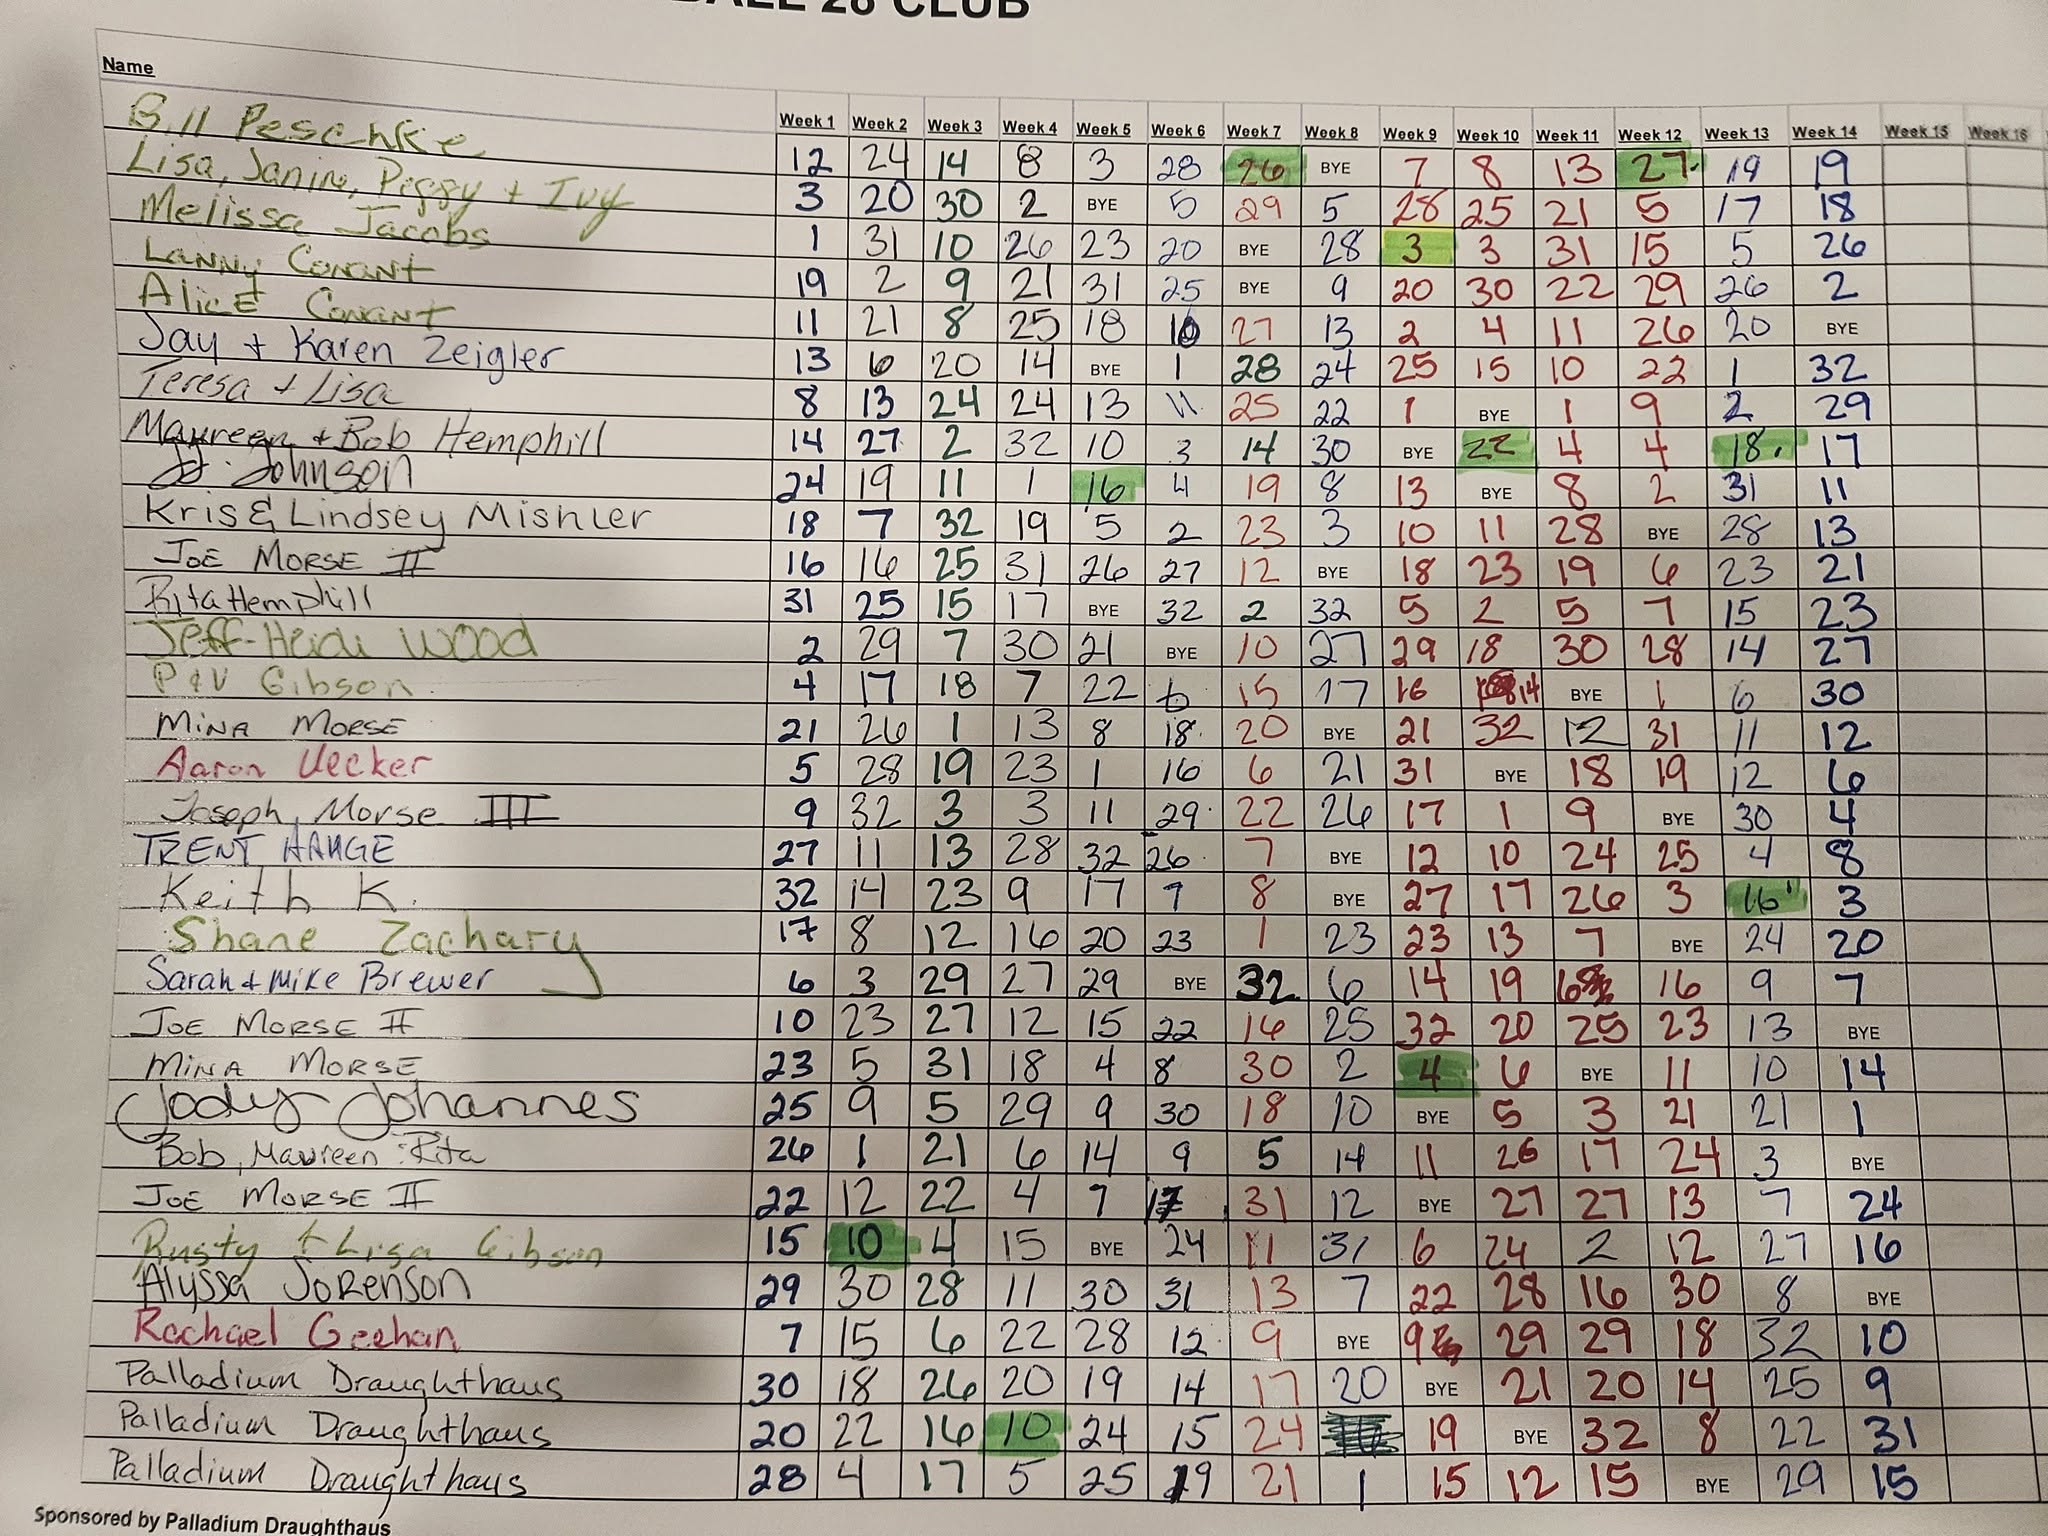 BALL 28 CLUB
Name Week 1 Week 2 Week 3 Week 4 Week 5 Week 6 Week 7 Week 8 Week 9 Week 10 Week 11 Week 12 Week 13 Week 14 Week 15 Week 16
Bill Peschke 12 24 14 8 3 28 26 BYE 7 8 13 27 19 19
Lisa, Janine, Peggy + Ivy 3 20 30 2 BYE 5 29 5 28 25 21 5 17 18
Melissa Jacobs 1 31 10 26 23 20 BYE 28 3 3 31 15 5 26
Lanny Conant 19 2 9 21 31 25 BYE 9 20 30 22 29 26 2
Alice Conant 11 21 8 25 18 10 27 13 2 4 11 26 20 BYE
Jay + Karen Zeigler 13 6 20 14 BYE 1 28 24 25 15 10 22 1 32
Teresa + Lisa 8 13 24 24 13 11 25 22 1 BYE 1 9 2 29
Maureen + Bob Hemphill 14 27 2 32 10 3 14 30 BYE 22 4 4 18 17
Johnson 24 19 11 1 16 4 19 8 13 BYE 8 2 31 11
Kris & Lindsey Mishler 18 7 32 19 5 2 23 3 10 11 28 BYE 28 13
JOE MORSE II 16 16 25 31 26 27 12 BYE 18 23 19 6 23 21
Rita Hemphill 31 25 15 17 BYE 32 2 32 5 2 5 7 15 23
Jeff-Heidi Wood 2 29 7 30 21 BYE 10 27 29 18 30 28 14 27
P & V Gibson 4 17 18 7 22 6 15 17 16 14 BYE 1 6 30
MINA MORSE 21 26 1 13 8 18 20 BYE 21 32 12 31 11 12
Aaron Uecker 5 28 19 23 1 16 6 21 31 BYE 18 19 12 6
Joseph Morse III 9 32 3 3 11 29 22 26 17 1 9 BYE 30 4
TRENT HAUGE 27 11 13 28 32 26 7 BYE 12 10 24 25 4 8
Keith K. 32 14 23 9 17 7 8 BYE 27 17 26 3 16 3
Shane Zachary 17 8 12 16 20 23 1 23 23 13 7 BYE 24 20
Sarah + Mike Brewer 6 3 29 27 29 BYE 32 6 14 19 6 16 9 7
JOE MORSE II 10 23 27 12 15 22 16 25 32 20 25 23 13 BYE
MINA MORSE 23 5 31 18 4 8 30 2 4 6 BYE 11 10 14
Jody Johannes 25 9 5 29 9 30 18 10 BYE 5 3 21 21 1
Bob, Maureen Rita 26 1 21 6 14 9 5 14 11 26 17 24 3 BYE
JOE MORSE II 22 12 22 4 7 17 31 12 BYE 27 27 13 7 24
Rusty + Lisa Gibson 15 10 4 15 BYE 24 11 31 6 24 2 12 27 16
Alyssa Sorenson 29 30 28 11 30 31 13 7 22 28 16 30 8 BYE
Rachael Geehan 7 15 6 22 28 12 9 BYE 9 29 29 18 32 10
Palladium Draughthaus 30 18 26 20 19 14 17 20 BYE 21 20 14 25 9
Palladium Draughthaus 20 22 16 10 24 15 24 19 BYE 32 8 22 31
Palladium Draughthaus 28 4 17 5 25 19 21 1 15 12 15 BYE 29 15
Sponsored by Palladium Draughthaus